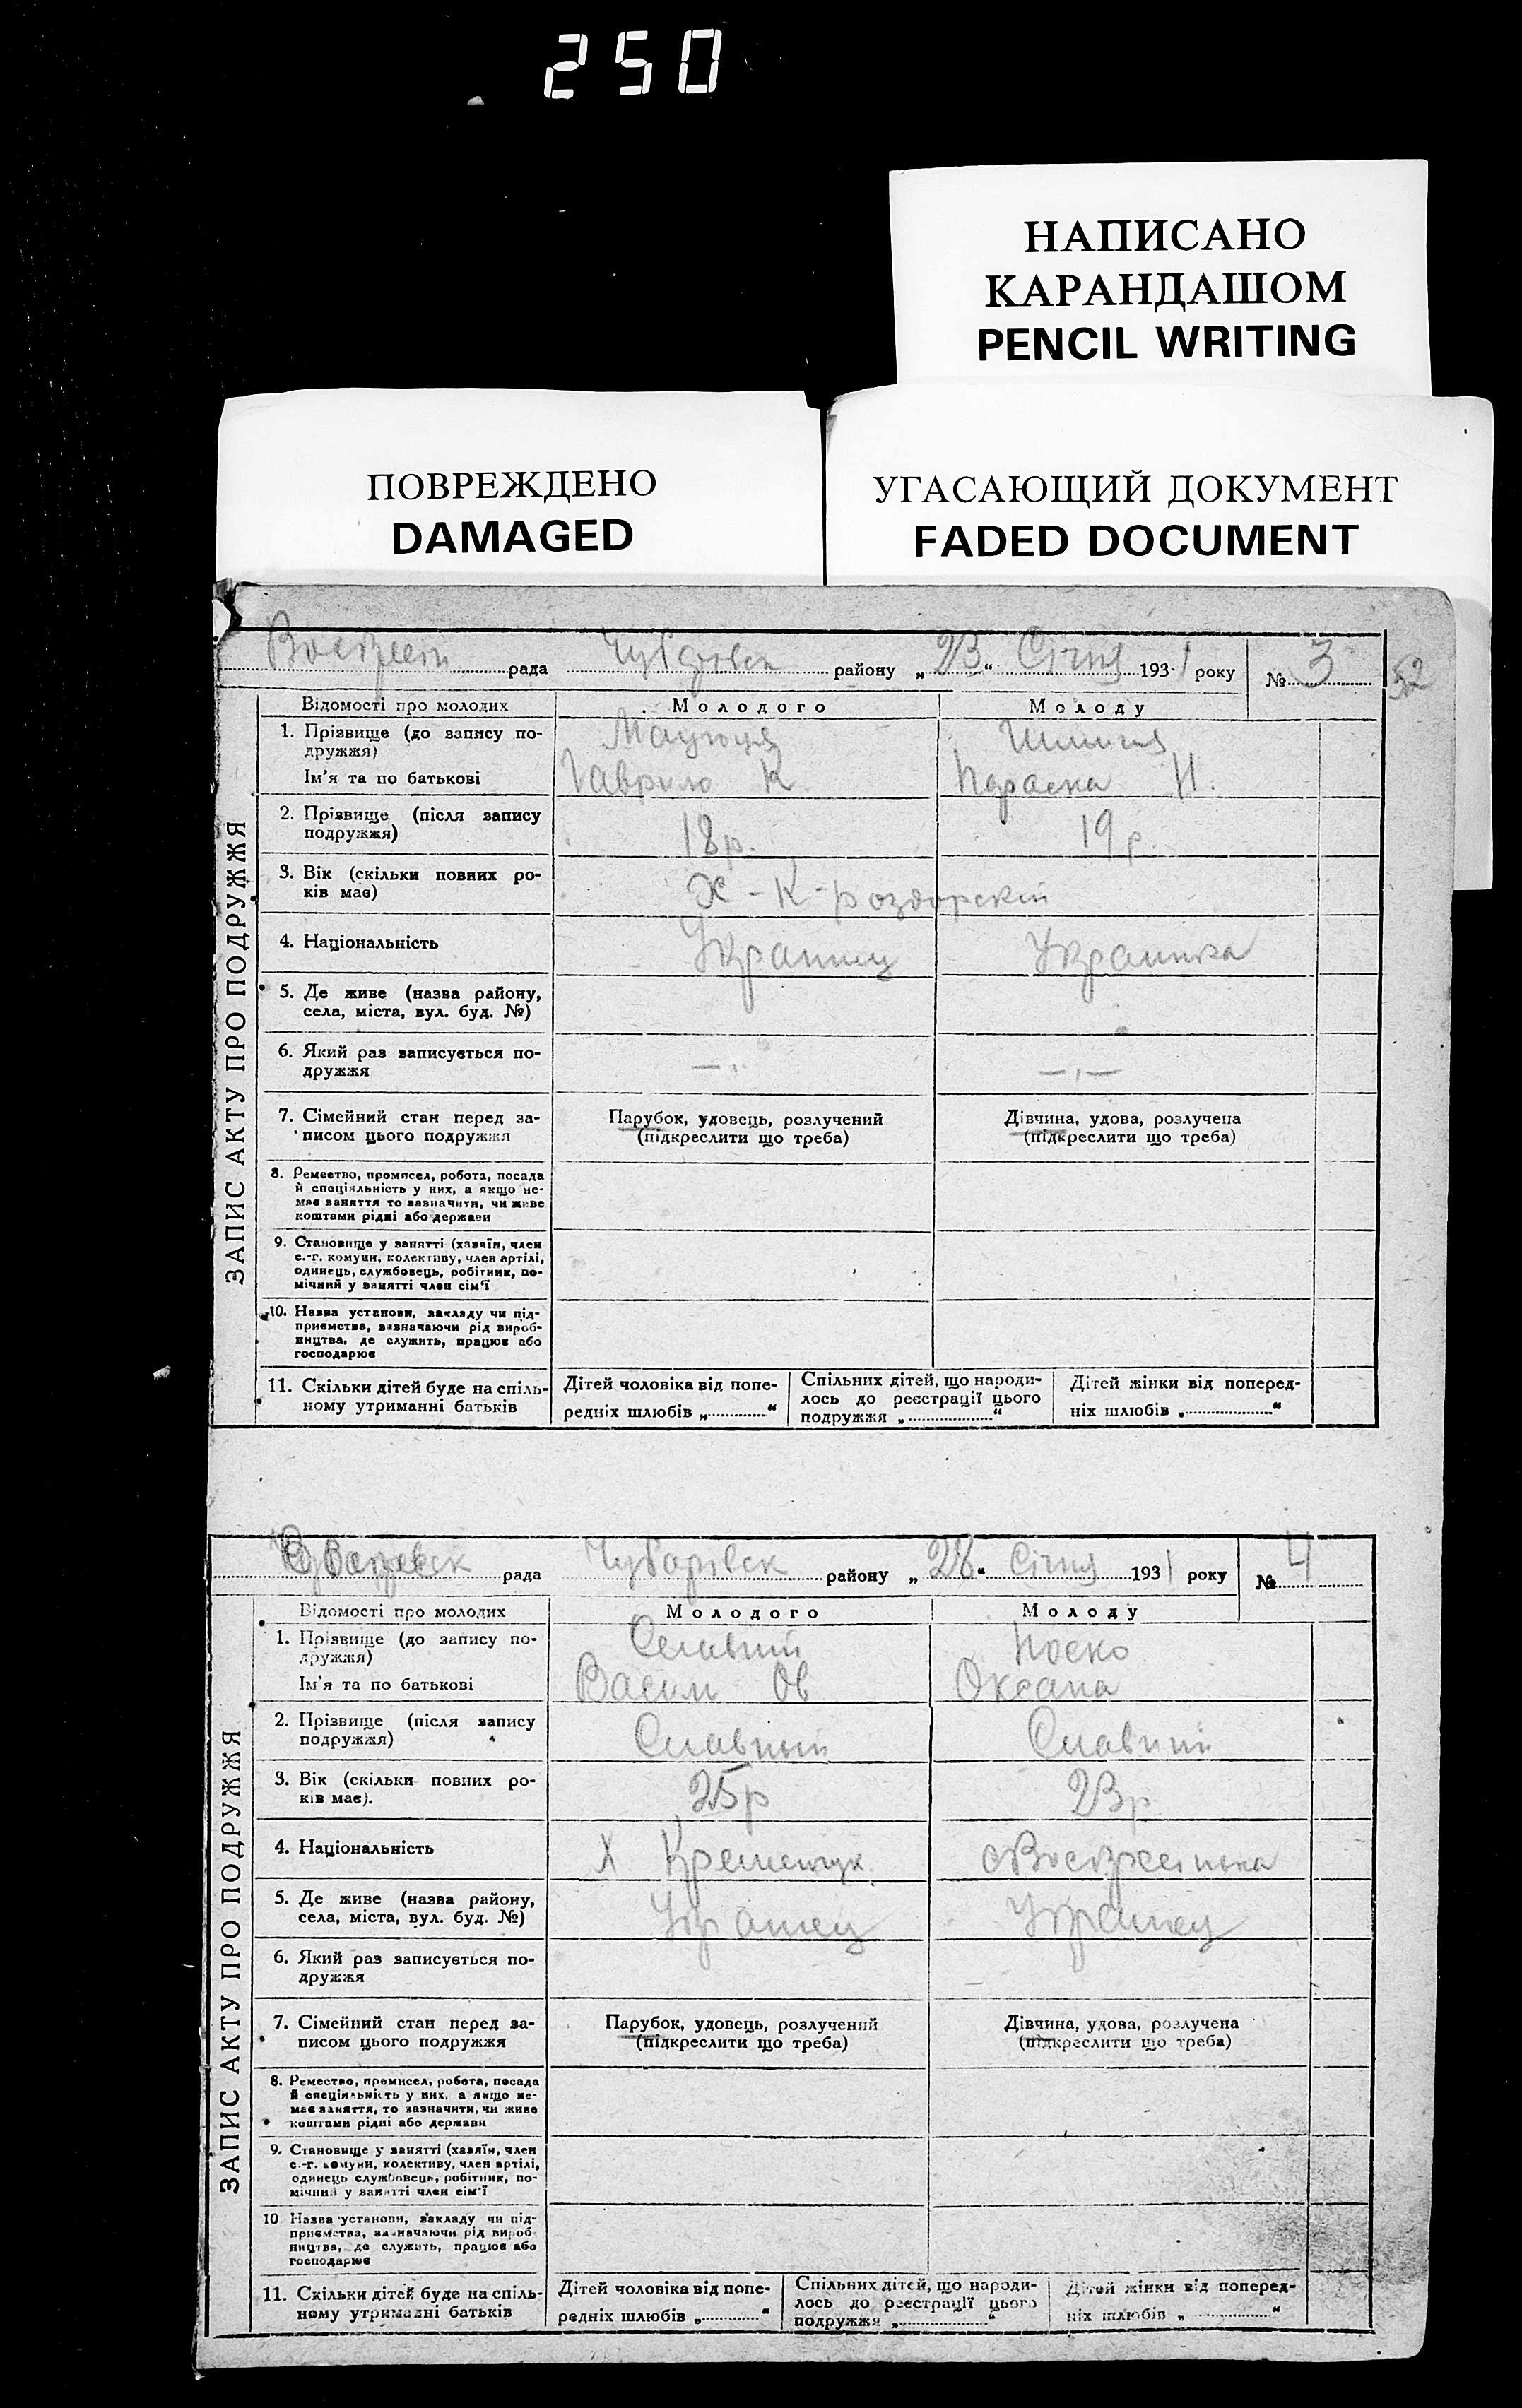 250
НАПИСАНО
КАРАНДАШОМ
PENCIL WRITING
ПОВРЕЖДЕНО
DAMAGED
УГАСАЮЩИЙ ДОКУМЕНТ
FADED DOCUMENT
рада району „23“ Січня 1931 року № 3
52
ЗАПИС АКТУ ПРО ПОДРУЖЖЯ
Відомості про молодих Молодого Молоду
1. Прізвище (до запису по-
дружжя)
Ім'я та по батькові Гаврило К. Параска Н.
2. Прізвище (після запису
подружжя) 18р. 19р.
3. Вік (скільки повних ро-
ків має) Х - К-роздорский
4. Національність Украинец Украинка
5. Де живе (назва району,
села, міста, вул. буд. №)
6. Який раз записується по-
дружжя
7. Сімейний стан перед за-
писом цього подружжя
Парубок, удовець, розлучений
(підкреслити що треба)
Дівчина, удова, розлучена
(підкреслити що треба)
8. Ремество, промисел, робота, посада
й спеціяльність у них, а якщо не-
має заняття то зазначити, чи живе
коштами рідні або держави
9. Становище у занятті (хазяїн, член
с.-г. комуни, колективу, член артілі,
одинець, службовець, робітник, по-
мічний у занятті член сім'ї
10. Назва установи, закладу чи під-
приємства, зазначаючи рід вироб-
ництва, де служить, працює або
господарює
11. Скільки дітей буде на спіль-
ному утриманні батьків
Дітей чоловіка від попе-
редніх шлюбів „ “
Спільних дітей, що народи-
лось до реєстрації цього
подружжя „ “
Дітей жінки від поперед-
ніх шлюбів „ “
рада Чубарівск району „28“ Січня 1931 року № 4
ЗАПИС АКТУ ПРО ПОДРУЖЖЯ
Відомості про молодих Молодого Молоду
1. Прізвище (до запису по-
дружжя) Носко
Ім'я та по батькові Васил Ов Оксана
2. Прізвище (після запису
подружжя) Славный Славний
3. Вік (скільки повних ро-
ків має). 25р 23р
4. Національність Х Кременчук
5. Де живе (назва району,
села, міста, вул. буд. №) Украінец Украінец
6. Який раз записується по-
дружжя
7. Сімейний стан перед за-
писом цього подружжя
Парубок, удовець, розлучений
(підкреслити що треба)
Дівчина, удова, розлучена
(підкреслити що треба)
8. Ремество, промисел, робота, посада
й спеціяльність у них, а якщо не-
має заняття, то зазначити, чи живе
коштами рідні або держави
9. Становище у занятті (хазяїн, член
с.-г. комуни, колективу, член артілі,
одинець службовець, робітник, по-
мічний у занятті член сім'ї
10 Назва установи, закладу чи під-
приємства, зазначаючи рід вироб-
ництва, де служить, працює або
господарює
11. Скільки дітей буде на спіль-
ному утриманні батьків
Дітей чоловіка від попе-
редніх шлюбів „ “
Спільних дітей, що народи-
лось до реєстрації цього
подружжя „ “
Дітей жінки від поперед-
ніх шлюбів „ “